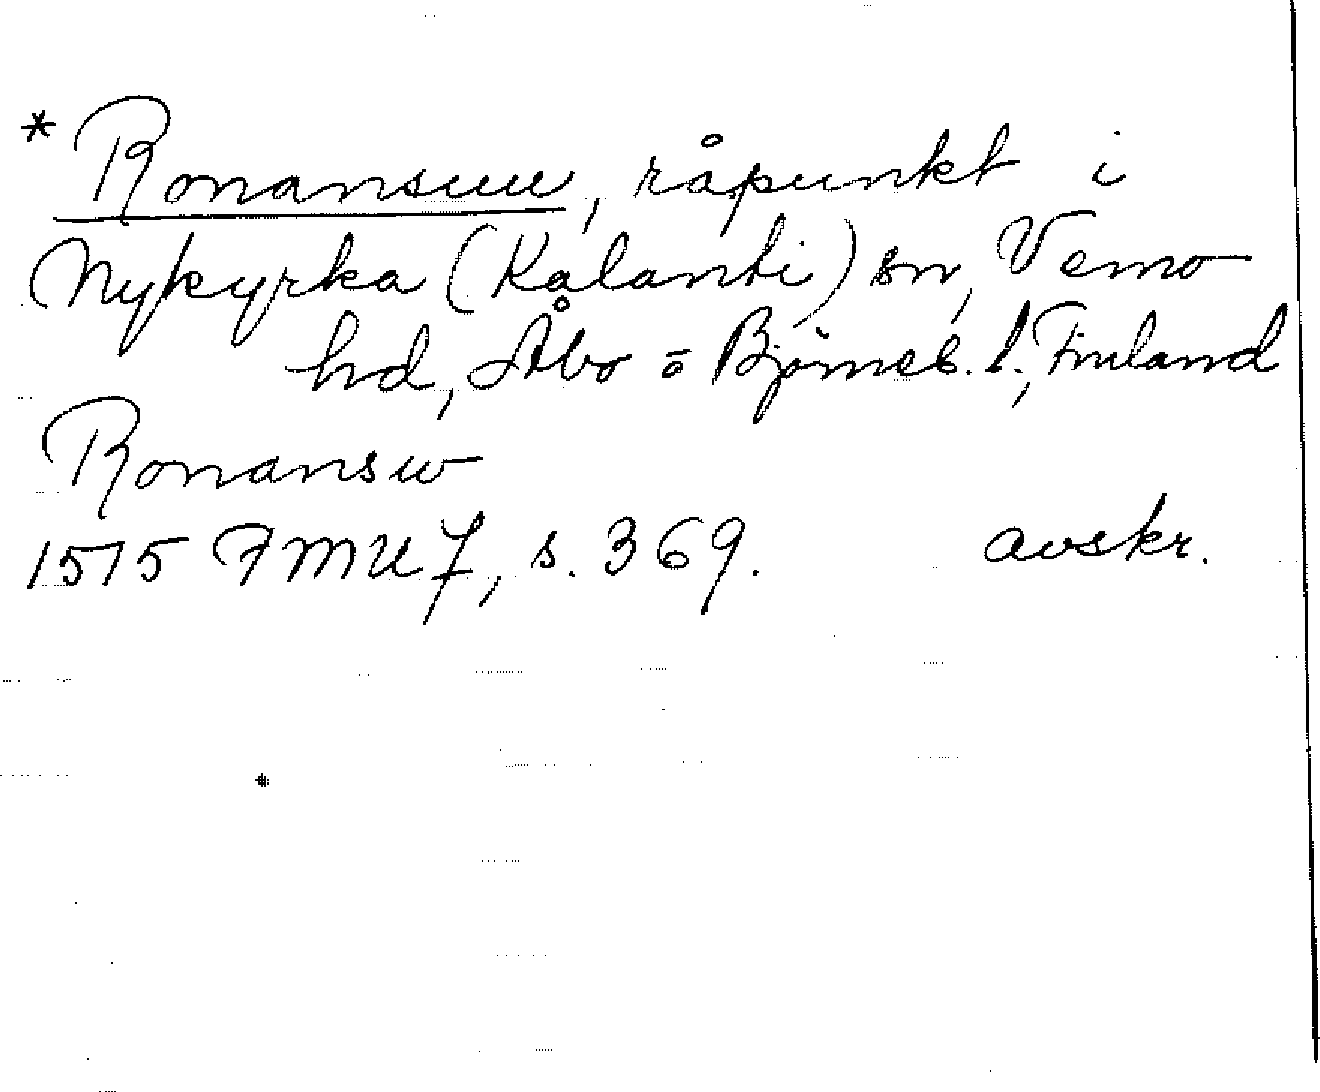 * Ronansuu, råpunkt i
Nykyrka (Kalanti) sn, Vemo
hd, Åbo o Björneb. l., Finland
Ronansw
1515 FMU 7, s. 369. avskr.